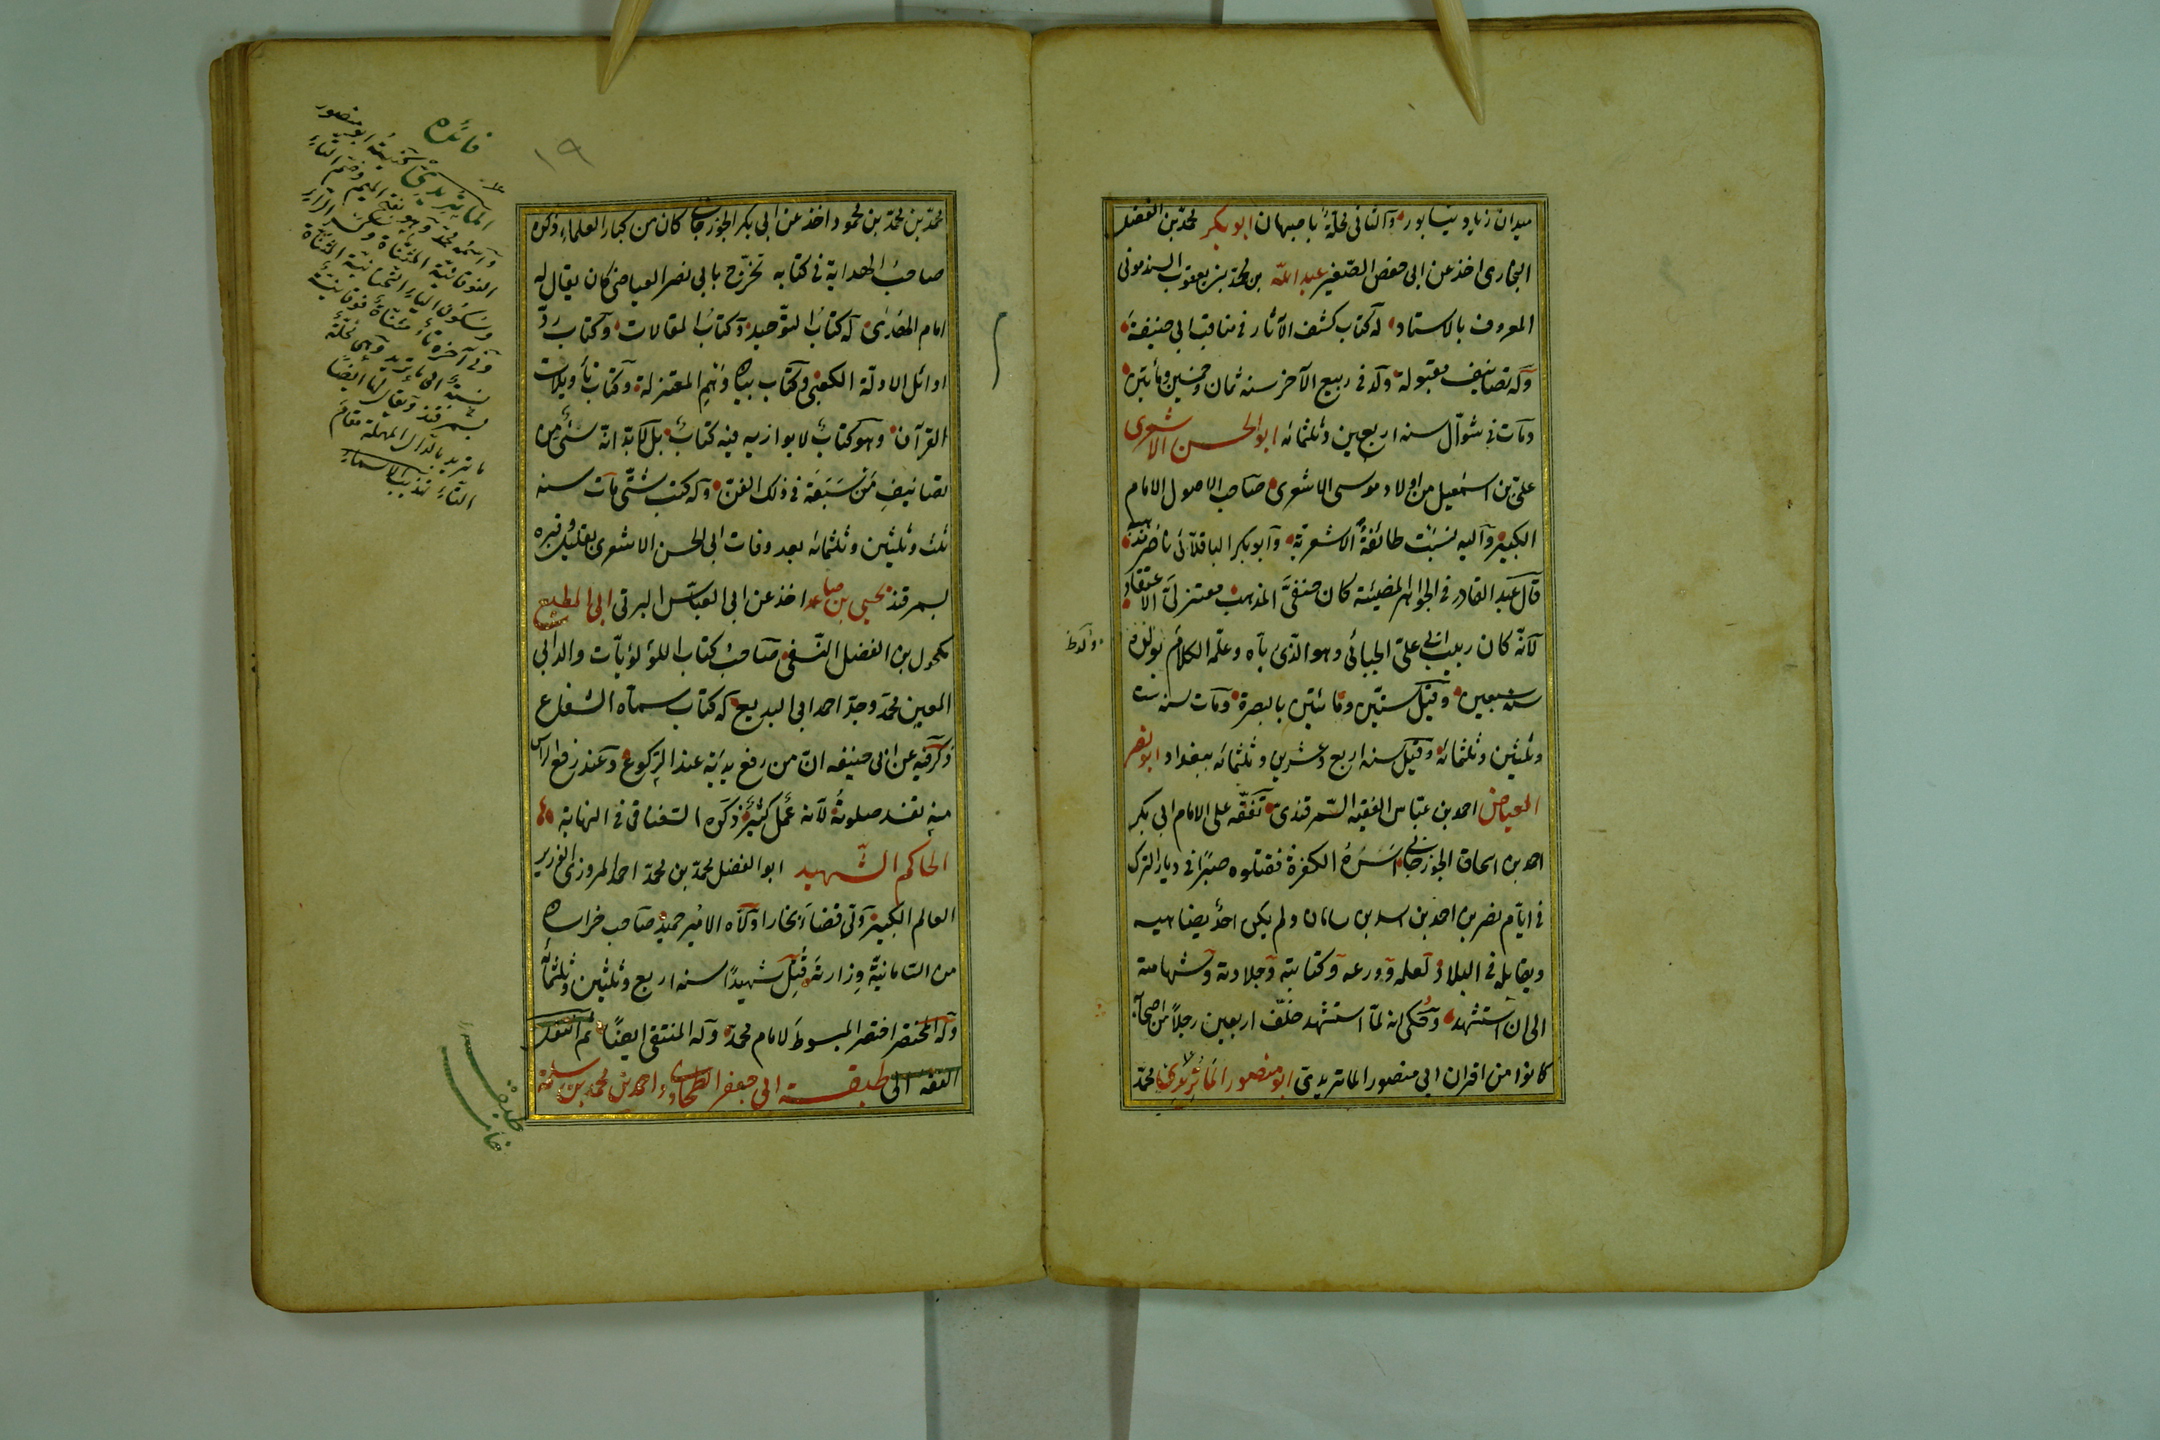 ميدان زياد بنيسابور والثانى محلة باصبهان ابو بكر محمد بن الفضل
البخارى اخذ عن ابى حفص الصغير عبد الله بن محمد بن يعقوب السبذمونى
المعروف بالاستاد له كتاب كشف الآثار فى مناقب ابى حنيفة
وله تصانيف مقبولة ولد فى ربيع الآخر سنه ثمان وخمسين ومأتين
ومات فى شوال سنه اربعين وثلثمائه ابو الحسن الاشعرى
على بن اسمعيل من اولاد موسى الاشعرى صاحب الاصول الامام
الكبير واليه نسبت طائفة الاشعرية وابو بكر الباقلانى ناصر مذهبه
قال عبد القادر فى الجواهر المضيئة كان حنفى المذهب معتزلى الاعتقاد
لانه كان ربيب ابى على الجبائى وهو الذى رباه وعلمه الكلام
سنه سبعين وقيل ستين ومائتين بالبصرة ومات سنه ست
وثلثين وثلثمائه وقيل سنه اربع وعشرين وثلثمائه ببغداد ابو نصر
العياضى احمد بن عباس الفقيه السمرقندى تفقه على الامام ابى بكر
احمد بن اسحاق الجوزجانى اسره الكفرة فقتلوه صبرا فى ديار الترك
فى ايام نصر بن احمد بن اسد بن سامان ولم يكن احد يضاهيه
ويقابله فى البلاد لعلمه وورعه وكتابته وجلادته وشهامته
الى ان استشهد وحكى انه لما استشهد خلف اربعين رجلا من اصحابه
كانوا من اقران ابى منصور الماتريدى ابو منصور الماتريدى محمد
ولد
١٩
محمد بن محمد بن محمود اخذ عن ابى بكر الجوزجانى كان من كبار العلماء ذكره
صاحب الهداية فى كتابه تخرج بابى نصر العياضى كان يقال له
امام الهدى له كتاب التوحيد وكتاب المقالات وكتاب رد
اوائل الادلة الكعبى وكتاب بيان وهم المعتزلة وكتاب تأويلات
القرآن وهو كتاب لا يوازيه فيه كتاب بل لا يدانيه شئ من
تصانيف من سبقه فى ذلك الفن وله كتب شتى مات سنه
ثلث وثلثين وثلثمائه بعد وفات ابى الحسن الاشعرى بقليل وقبره
بسمرقند يحيى بن صاعد اخذ عن ابى العباس البرتى ابى المطيع
مكحول بن الفضل النسفى صاحب كتاب اللؤلؤيات والد ابى
المعين محمد وجد احمد ابى البديع له كتاب سماه الشعاع
ذكر فيه عن ابى حنيفه ان من رفع يديه عند الركوع وعند رفع الراس
منه تفسد صلوته لانه عمل كثير ذكره السغناقى فى النهاية
الحاكم الشهيد ابو الفضل محمد بن محمد احمد المروزى الوزير
العالم الكبير ولى قضاء بخارا وولاه الامير حميد صاحب خراسان
من السامانية وزارته قتل شهيدا سنه اربع وثلثين وثلثمائه
وله المختصر اختصر المبسوط للامام محمد وله المنتقى ايضا ثم انتقل
الفقه الى طبقة ابى جعفر الطحاوى احمد بن محمد بن سلامة
فائده
الماتريدى كنيته ابو منصور
واسمه محمد وهو بفتح الميم وضم التاء
الفوقانية المثناة وكسر الراء
وسكون الياء التحتانية المثناة
وفى آخره تاء مثناة فوقانية
نسبة الى ماتريد وهى محلة
بسمرقند ويقال لها ايضا
ماتريد بالدال المهملة مقام
التاء تهذيب الاسماء